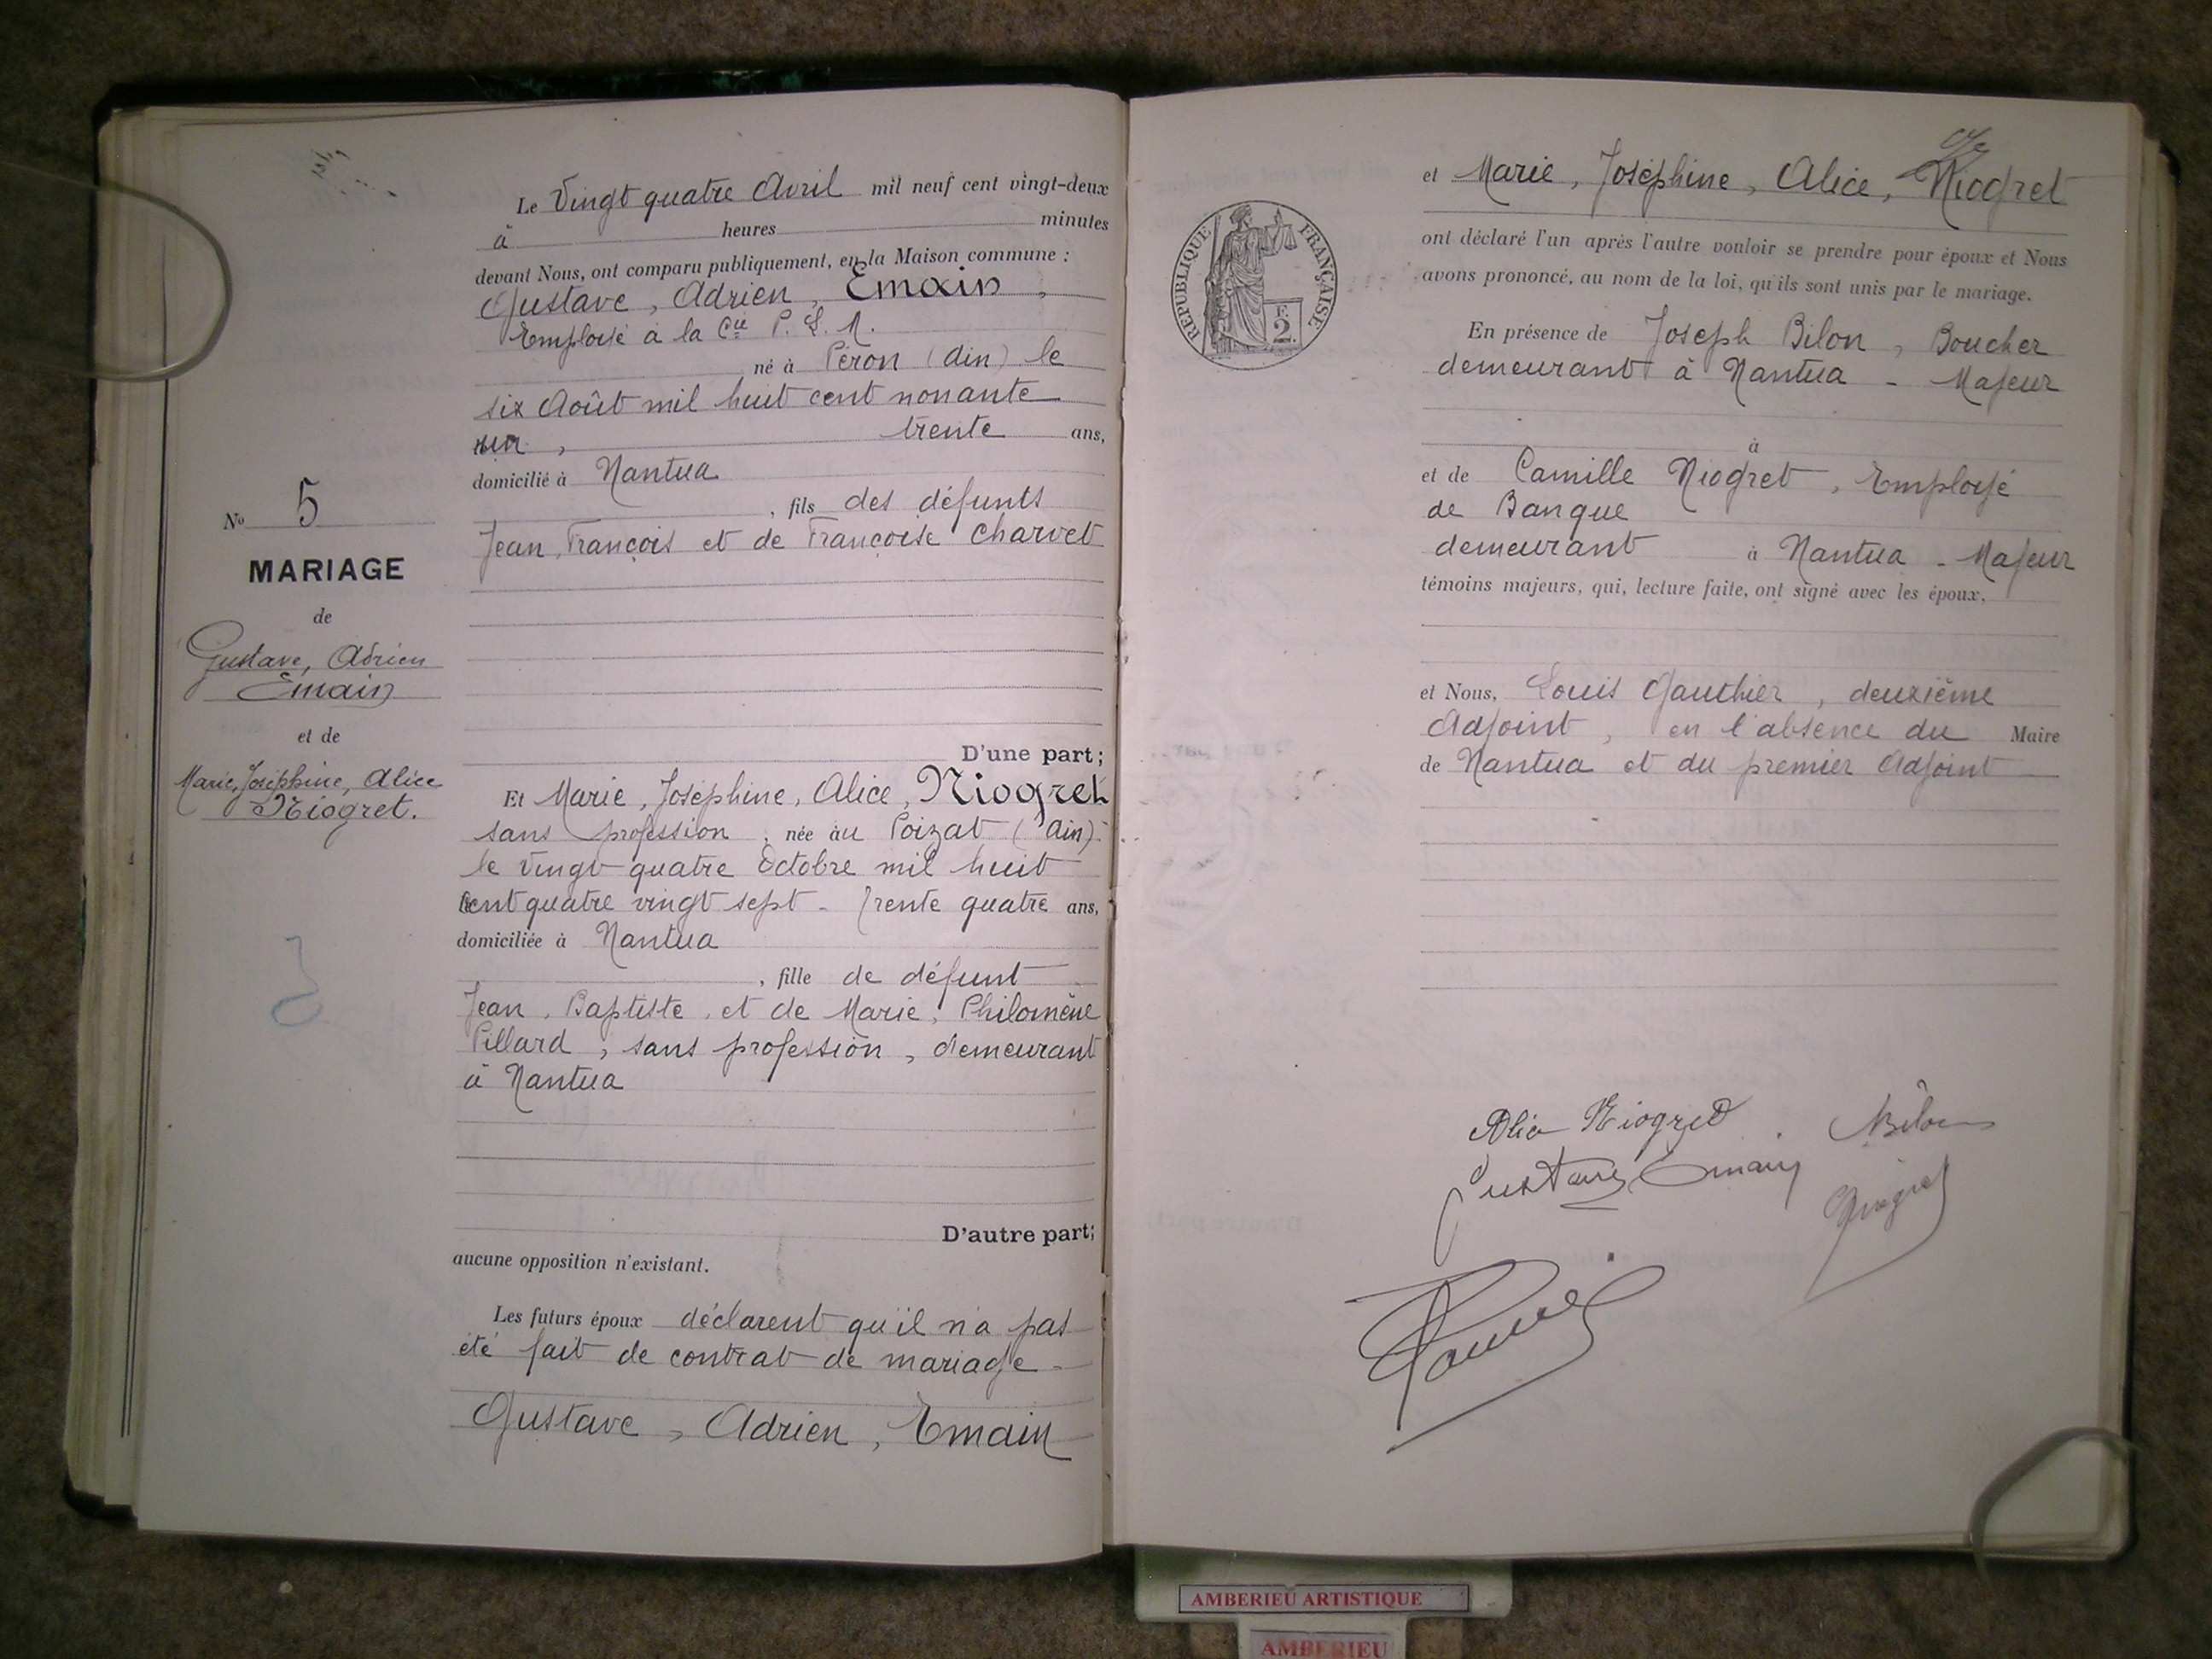 Le Vingt quatre Avril mil neuf cent vingt-deux
à heures minutes
devant Nous, ont comparu publiquement, en la Maison commune :
Gustave, Adrien, Emain,
Employé à la Cie P. L. M.
né à Péron (Ain) le
six Août mil huit cent nonante
un, trente ans,
domicilié à Nantua
, fils des défunts
Jean, François et de Françoise Charvet
No 5
MARIAGE
de
Gustave, Adrien
Emain
et de
Marie, Joséphine, Alice
Niogret.
D'une part ;
Et Marie, Joséphine, Alice, Niogret
sans profession, née au Poizat (Ain)
le vingt quatre Octobre mil huit
cent quatre vingt sept - trente quatre ans,
domiciliée à Nantua
, fille de défunt
Jean, Baptiste, et de Marie, Philomène
Pillard, sans profession, demeurant
à Nantua
D'autre part ;
aucune opposition n'existant.
Les futurs époux déclarent qu'il n'a pas
été fait de contrat de mariage -
Gustave, Adrien, Emain
et Marie, Joséphine, Alice, Niogret
ont déclaré l'un après l'autre vouloir se prendre pour époux et Nous
avons prononcé, au nom de la loi, qu'ils sont unis par le mariage.
RÉPUBLIQUE FRANÇAISE
2
En présence de Joseph Bilon, Boucher
demeurant à Nantua - Majeur
à
et de Camille Niogret, Employé
de Banque
demeurant à Nantua - Majeur
témoins majeurs, qui, lecture faite, ont signé avec les époux,
et Nous, Louis Gauthier, deuxième
Adjoint, en l'absence du Maire
de Nantua et du premier Adjoint
Alice Niogret Bilon
Gustave Emain Niogret
AMBERIEU ARTISTIQUE
AMBERIEU